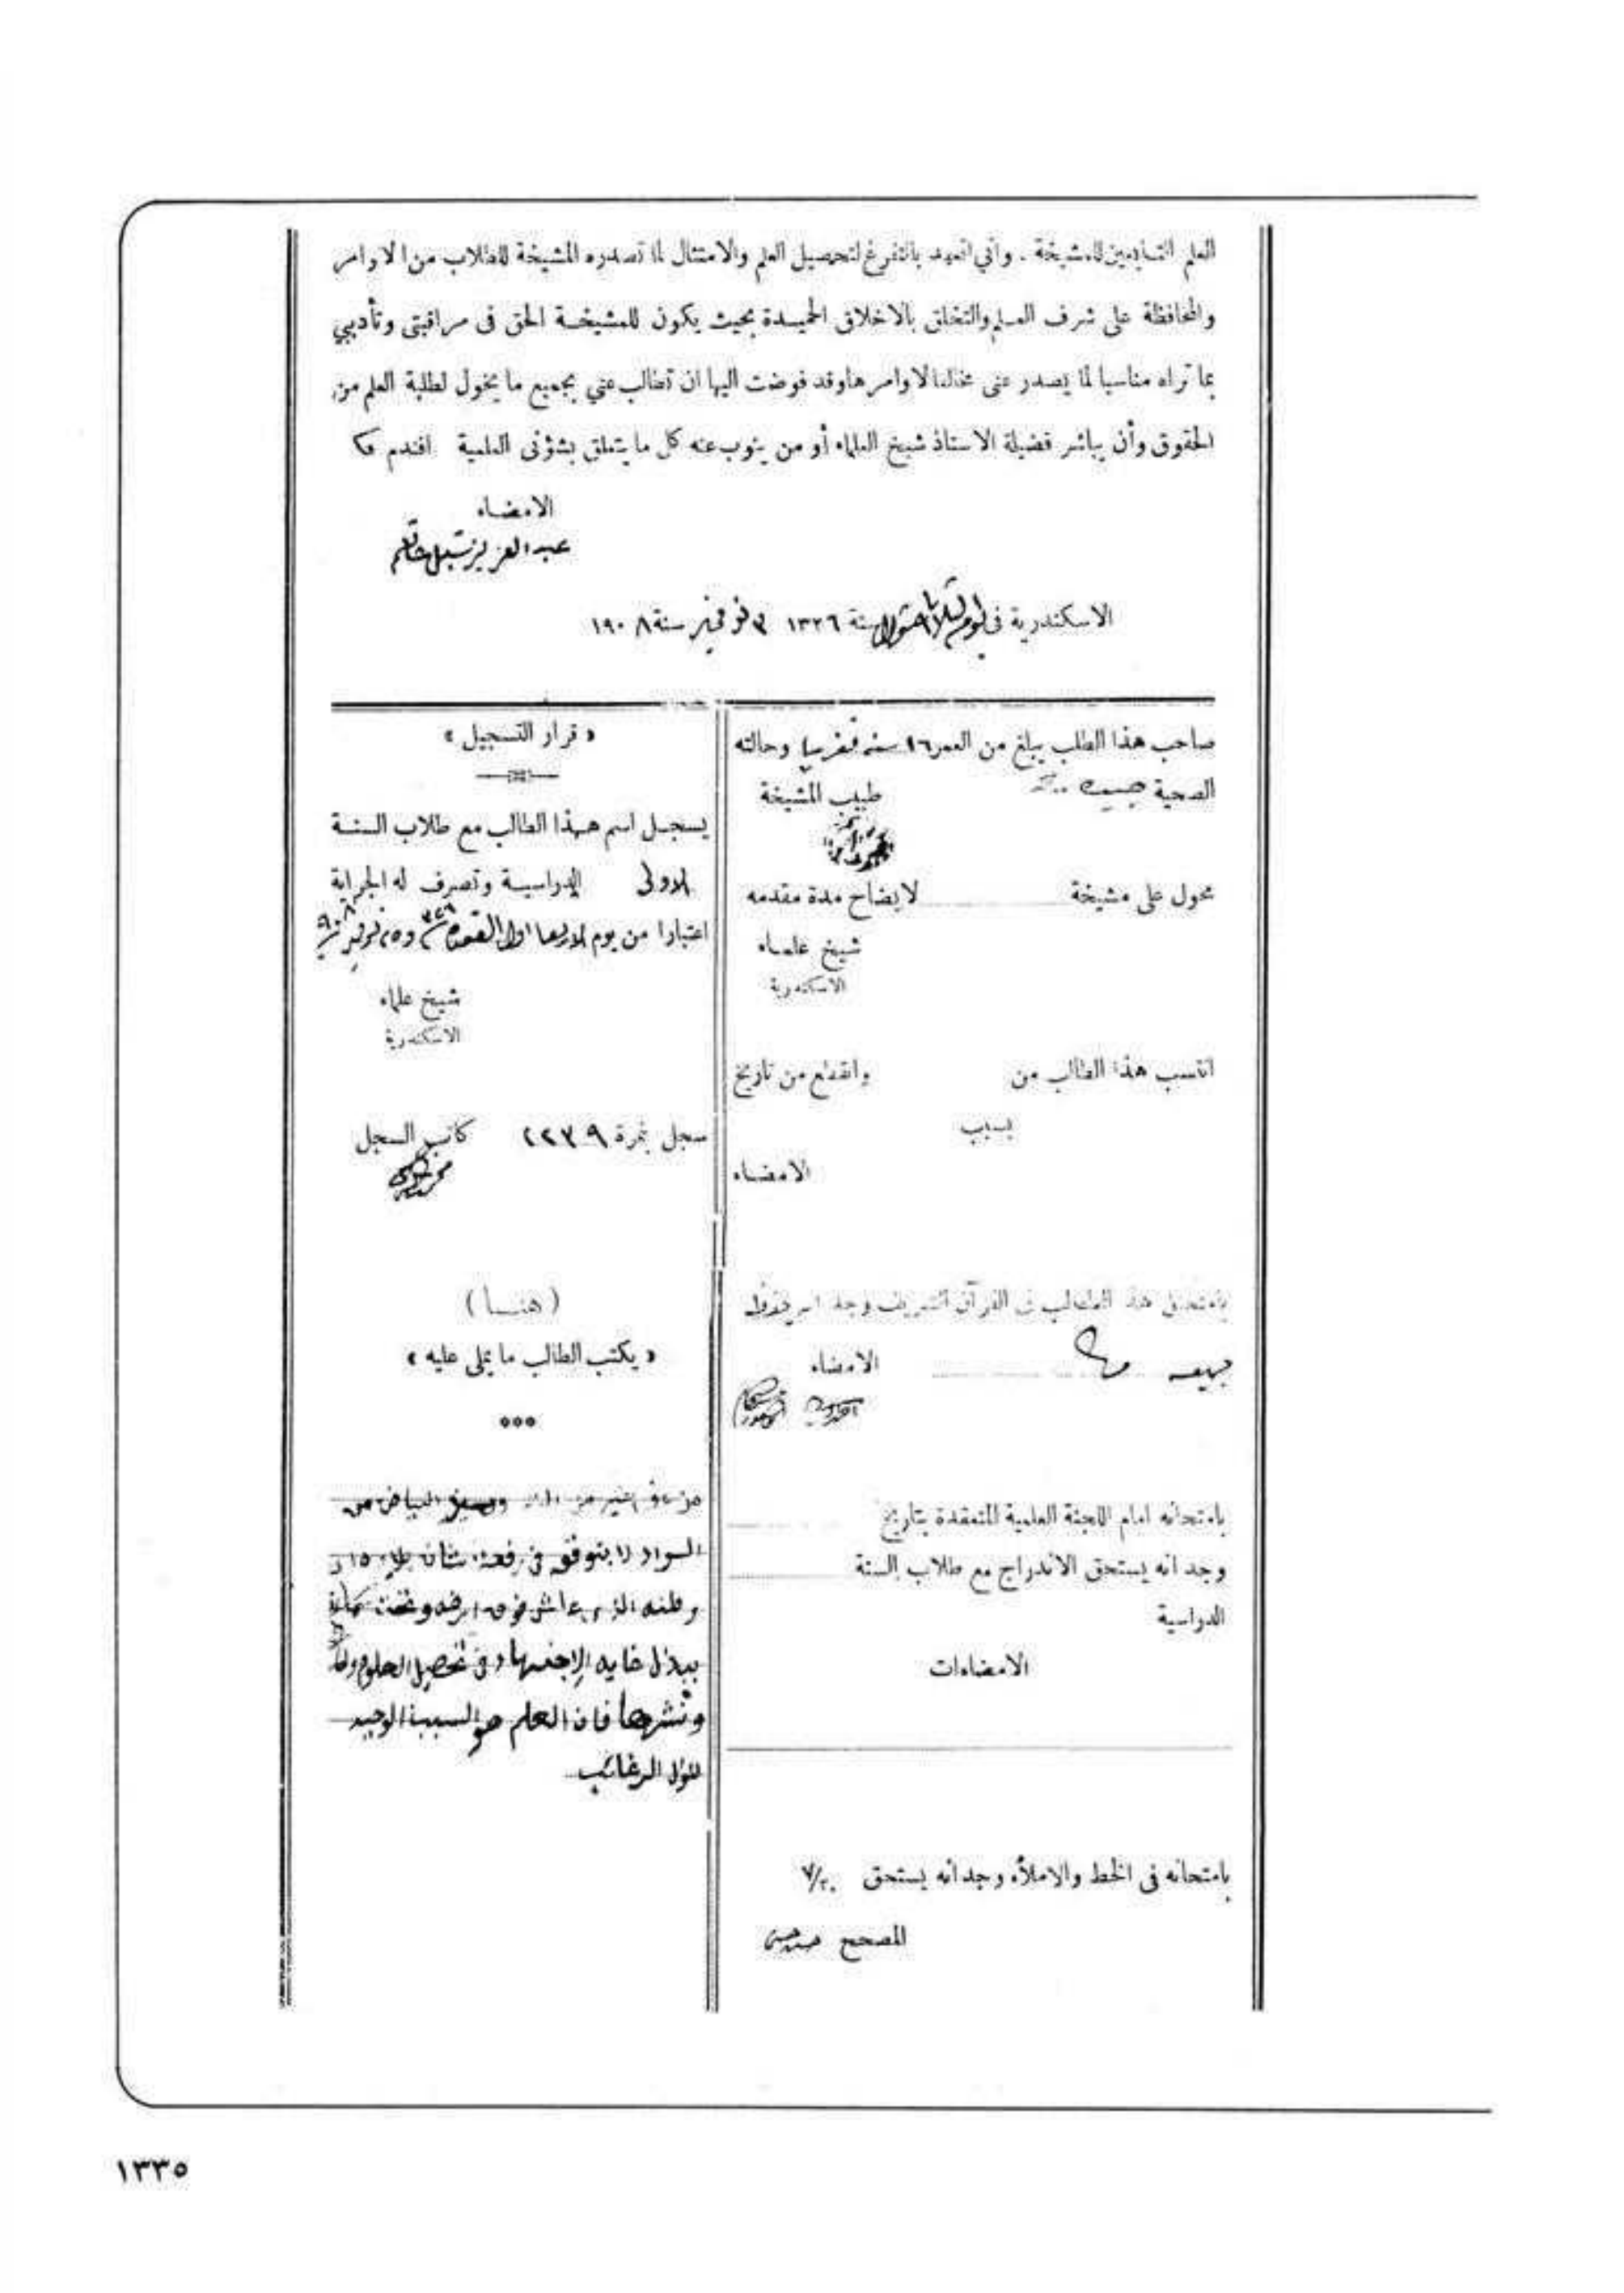 العلم التابعين للمشيخة . وأني اتعهد بالتفرغ لتحصيل العلم والامتثال لما تصدره المشيخة للطلاب من الاوامر
والمحافظة على شرف العلم والتخلق بالاخلاق الحميدة بحيث يكون للمشيخة الحق فى مراقبتى وتأديبي
بما تراه مناسبا لما يصدر عنى مخالفا لاوامرها وقد فوضت اليها ان تطالب عني بجميع ما يخول لطلبة العلم من
الحقوق وأن يباشر فضيلة الاستاذ شيخ العلماء أو من ينوب عنه كل ما يتعلق بشؤنى العلمية افندم
الامضاء
عبد العزيز
الاسكندرية فى يوم الثلاثا شوال سنة ١٣٢٦ ٣ نوفمبر سنة ١٩٠٨
صاحب هذا الطلب يبلغ من العمر ١٦ سنه تقريبا وحالته
الصحية جيده
طبيب المشيخة
محول على مشيخة لايضاح مدة مقدمه
شيخ علماء
الاسكندرية
انتسب هذا الطالب من وانقطع من تاريخ
بسبب
الامضاء
بامتحان هذا الطالب فى القرآن الشريف وجد
الامضاء
بامتحانه امام اللجنة العلمية المنعقدة بتاريخ
وجد انه يستحق الاندراج مع طلاب السنة
الدراسية
الامضاءات
بامتحانه فى الخط والاملاء وجد أنه يستحق ٧/٢٠
المصحح
« قرار التسجيل »
يسجل اسم هذا الطالب مع طلاب السنة
الاولى الدراسية وتصرف له الجراية
اعتبارا من يوم الاربعا اول القعدة ٣٢٦ و٢٥ نوفمبر
شيخ علماء
الاسكندرية
سجل بنمرة ٢٢٣٩ كاتب السجل
(هنا)
« يكتب الطالب ما يملى عليه »
٠٠٠
البياض من
السواد لا يتوفق فى رفعة شان
وطنه الذى عاش فوق ارضه وتحت
ببذل غايه الاجتهاد فى تحصيل العلوم
ونشرها فان العلم هو السبب الوحيد
الرغائب
١٣٣٥